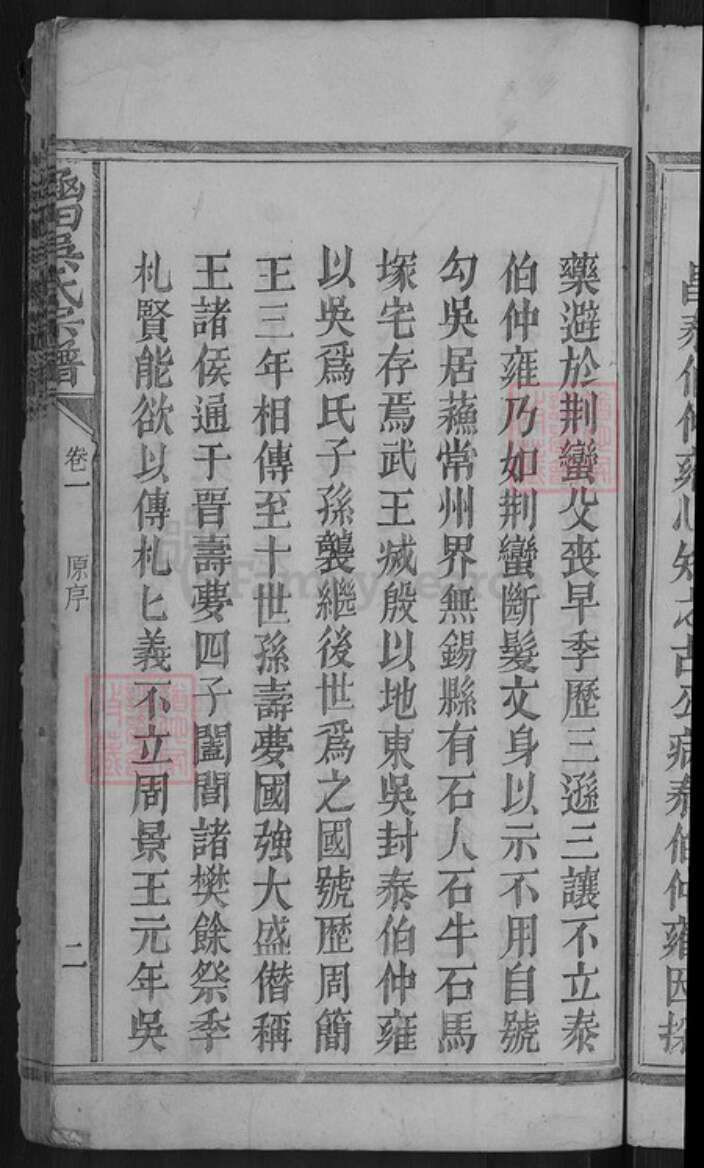 昌泰伯仲雍心知之古公病泰伯仲雍因採
藥避於荆蠻父喪早季歷三遜三讓不立泰
伯仲雍乃如荆蠻斷髮文身以示不用自號
勾吳居蘓常州界無錫縣有石人石牛石馬
塚宅存焉武王滅殷以地東吳封泰伯仲雍
以吳爲氏子孫襲繼後世爲之國號歷周簡
王三年相傳至十世孫壽夢國強大盛僭稱
王諸侯通于晋壽夢四子闔閭諸樊餘祭季
札賢能欲以傳札匕義不立周景王元年吳
吳氏宗譜
卷一
原序
二
FamilySearch